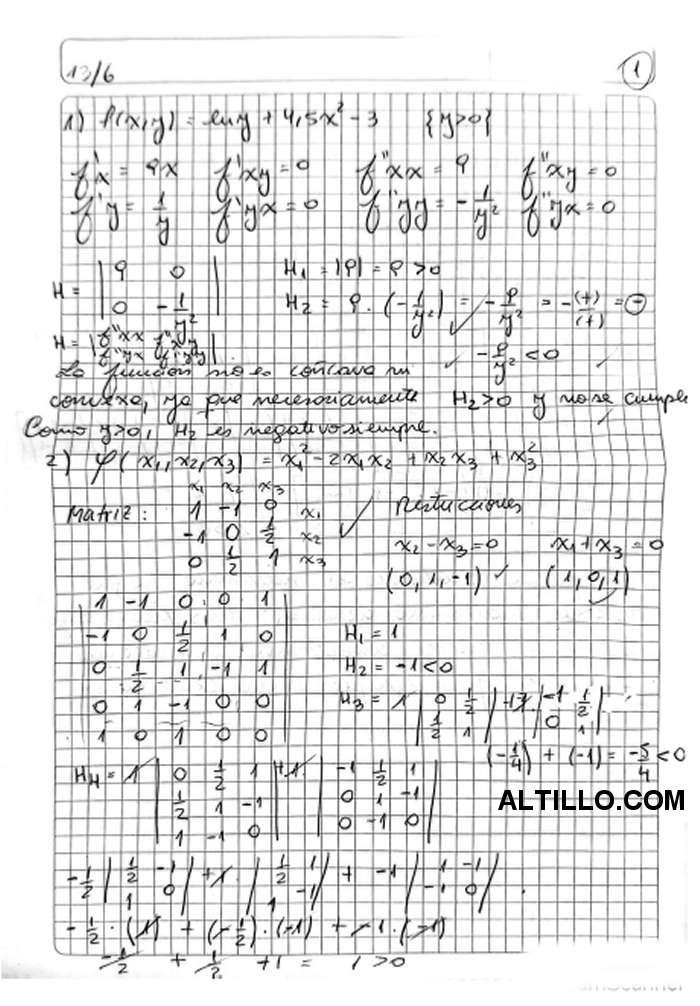 13/6 1
1) f(x,y) = ln y + 4,5x² - 3 {y>0}
f'x = 9x f'xy = 0 f''xx = 9 f''xy = 0
f'y = 1/y f'yx = 0 f''yy = -1/y² f''yx = 0
H = | 9 0 | H₁ = |9| = 9 > 0
| 0 -1/y² | H₂ = 9 . (-1/y²) = -9/y² = -(+)/(+) = ⊖
H = | f''xx f''xy |
| f''yx f''yy | -9/y² < 0
La función no es cóncava ni
convexa, ya que necesariamente H₂>0 y no se cumple
Como y>0, H₂ es negativo siempre.
2) φ(x₁,x₂,x₃) = x₁² - 2x₁x₂ + x₂x₃ + x₃²
x₁ x₂ x₃
Matriz: 1 -1 0 x₁ Restricciones
-1 0 1/2 x₂ x₂ - x₃ = 0 x₁ + x₃ = 0
0 1/2 1 x₃ (0, 1, -1) (1, 0, 1)
| 1 -1 0 0 1 |
| -1 0 1/2 1 0 | H₁ = 1
| 0 1/2 1 -1 1 | H₂ = -1 < 0
| 0 1 -1 0 0 | H₃ = 1 | 0 1/2 | | -1 1/2 |
| 1 0 1 0 0 | | 1/2 1 | | 0 1 |
(-1/4) + (-1) = -5/4 < 0
H₄ = 1 | 0 1/2 1 | +1 | -1 1/2 1 |
| 1/2 1 -1 | | 0 1 -1 |
| 1 -1 0 | | 0 -1 0 |
ALTILLO.COM
-1/2 | 1/2 -1 | +1 . | 1/2 1 | + -1 | 1 -1 |
| 1 0 | | 1 -1 | | -1 0 |
-1/2 . (1) + (-1/2) . (-1) + -1 . (-1)
-1/2 + 1/2 + 1 = 1 > 0